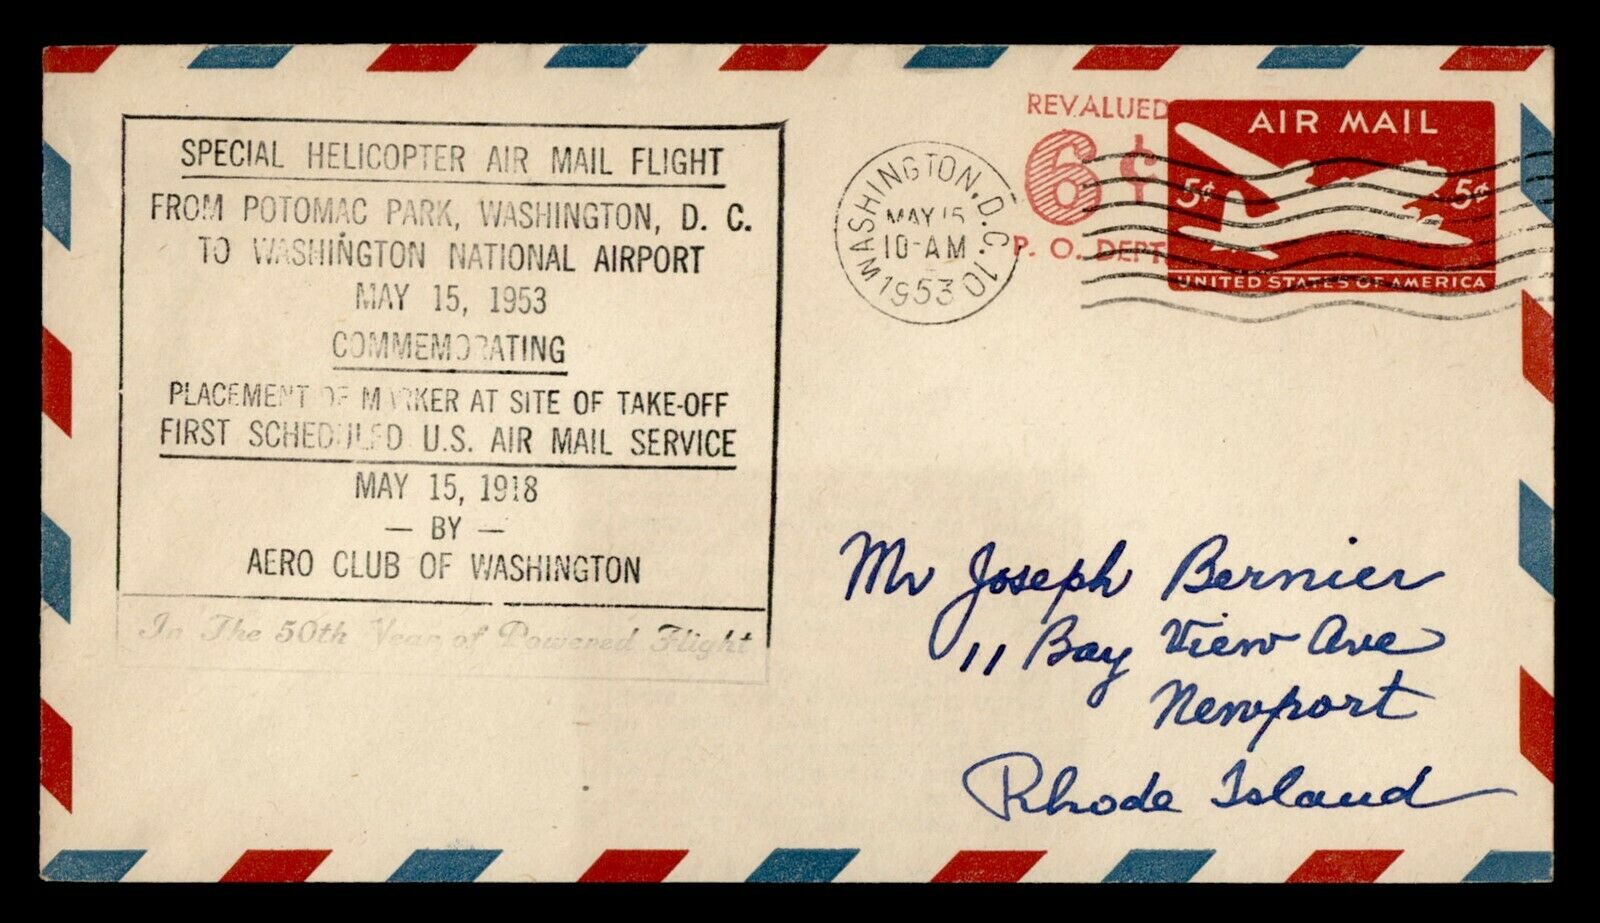 SPECIAL HELICOPTER AIR MAIL FLIGHT
FROM POTOMAC PARK, WASHINGTON, D. C.
TO WASHINGTON NATIONAL AIRPORT
MAY 15, 1953
COMMEMORATING
PLACEMENT OF MARKER AT SITE OF TAKE-OFF
FIRST SCHEDULED U.S. AIR MAIL SERVICE
MAY 15, 1918
— BY —
AERO CLUB OF WASHINGTON
In The 50th Year of Powered Flight
WASHINGTON, D.C. 10
MAY 15
10-AM
1953
REVALUED
6¢
P. O. DEPT.
AIR MAIL
5¢ 5¢
UNITED STATES OF AMERICA
Mr Joseph Bernier
11 Bay View Ave
Newport
Rhode Island